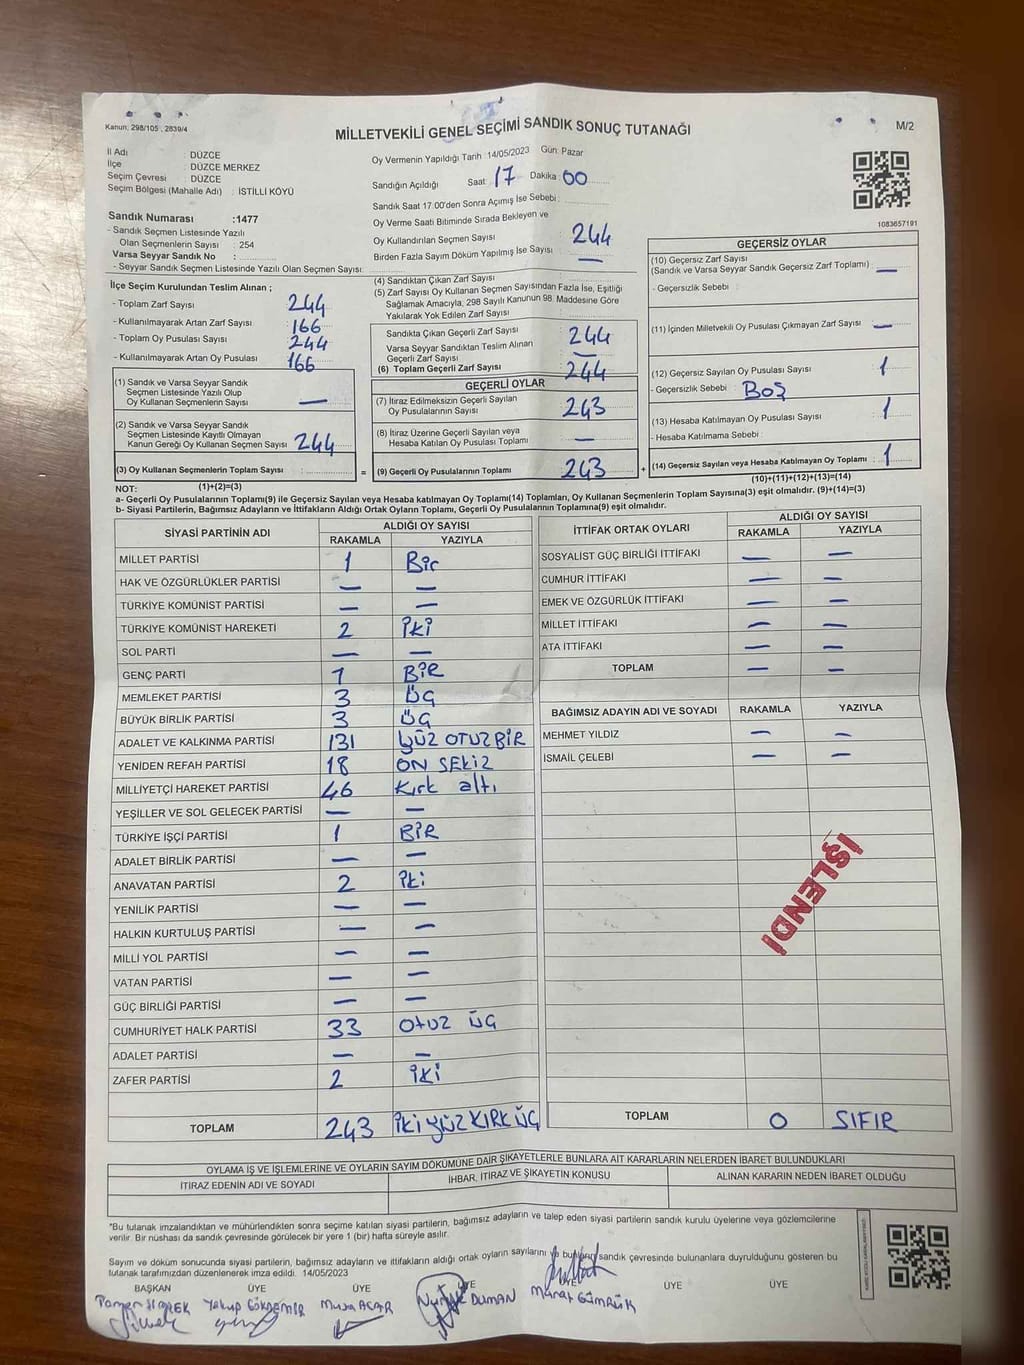 Kanun; 298/105 , 2839/4
MİLLETVEKİLİ GENEL SEÇİMİ SANDIK SONUÇ TUTANAĞI
M/2
İl Adı : DÜZCE
İlçe : DÜZCE MERKEZ
Seçim Çevresi : DÜZCE
Seçim Bölgesi (Mahalle Adı) : İSTİLLİ KÖYÜ
Oy Vermenin Yapıldığı Tarih :14/05/2023 Gün: Pazar
Sandığın Açıldığı Saat: 17 Dakika: 00
Sandık Saat 17.00'den Sonra Açımış İse Sebebi:
Sandık Numarası :1477
- Sandık Seçmen Listesinde Yazılı
Olan Seçmenlerin Sayısı : 254
Varsa Seyyar Sandık No :
- Seyyar Sandık Seçmen Listesinde Yazılı Olan Seçmen Sayısı:
Oy Verme Saati Bitiminde Sırada Bekleyen ve
Oy Kullandırılan Seçmen Sayısı 244
Birden Fazla Sayım Döküm Yapılmış İse Sayısı : —
1083657191
İlçe Seçim Kurulundan Teslim Alınan ;
- Toplam Zarf Sayısı : 244
- Kullanılmayarak Artan Zarf Sayısı : 166
- Toplam Oy Pusulası Sayısı : 244
- Kullanılmayarak Artan Oy Pusulası : 166
(1) Sandık ve Varsa Seyyar Sandık
Seçmen Listesinde Yazılı Olup
Oy Kullanan Seçmenlerin Sayısı : —
(2) Sandık ve Varsa Seyyar Sandık
Seçmen Listesinde Kayıtlı Olmayan
Kanun Gereği Oy Kullanan Seçmen Sayısı : 244
(3) Oy Kullanan Seçmenlerin Toplam Sayısı : =
(1)+(2)=(3)
(4) Sandıktan Çıkan Zarf Sayısı :
(5) Zarf Sayısı Oy Kullanan Seçmen Sayısından Fazla İse, Eşitliği
Sağlamak Amacıyla, 298 Sayılı Kanunun 98. Maddesine Göre
Yakılarak Yok Edilen Zarf Sayısı :
Sandıkta Çıkan Geçerli Zarf Sayısı : 244
Varsa Seyyar Sandıktan Teslim Alınan
Geçerli Zarf Sayısı : —
(6) Toplam Geçerli Zarf Sayısı : 244
GEÇERLİ OYLAR
(7) İtiraz Edilmeksizin Geçerli Sayılan
Oy Pusulalarının Sayısı : 243
(8) İtiraz Üzerine Geçerli Sayılan veya
Hesaba Katılan Oy Pusulası Toplamı : —
(9) Geçerli Oy Pusulalarının Toplamı : 243 +
GEÇERSİZ OYLAR
(10) Geçersiz Zarf Sayısı
(Sandık ve Varsa Seyyar Sandık Geçersiz Zarf Toplamı) : —
- Geçersizlik Sebebi :
(11) İçinden Milletvekili Oy Pusulası Çıkmayan Zarf Sayısı : —
(12) Geçersiz Sayılan Oy Pusulası Sayısı : 1
- Geçersizlik Sebebi : BOŞ
(13) Hesaba Katılmayan Oy Pusulası Sayısı : 1
- Hesaba Katılmama Sebebi :
(14) Geçersiz Sayılan veya Hesaba Katılmayan Oy Toplamı : 1
(10)+(11)+(12)+(13)=(14)
NOT:
a- Geçerli Oy Pusulalarının Toplamı(9) ile Geçersiz Sayılan veya Hesaba katılmayan Oy Toplamı(14) Toplamları, Oy Kullanan Seçmenlerin Toplam Sayısına(3) eşit olmalıdır. (9)+(14)=(3)
b- Siyasi Partilerin, Bağımsız Adayların ve İttifakların Aldığı Ortak Oyların Toplamı, Geçerli Oy Pusulalarının Toplamına(9) eşit olmalıdır.
SİYASİ PARTİNİN ADI ALDIĞI OY SAYISI
RAKAMLA YAZIYLA
MİLLET PARTİSİ 1 Bir
HAK VE ÖZGÜRLÜKLER PARTİSİ — —
TÜRKİYE KOMÜNİST PARTİSİ — —
TÜRKİYE KOMÜNİST HAREKETİ 2 İKİ
SOL PARTİ — —
GENÇ PARTİ 1 BİR
MEMLEKET PARTİSİ 3 ÜÇ
BÜYÜK BİRLİK PARTİSİ 3 ÜÇ
ADALET VE KALKINMA PARTİSİ 131 YÜZ OTUZ BİR
YENİDEN REFAH PARTİSİ 18 ON SEKİZ
MİLLİYETÇİ HAREKET PARTİSİ 46 Kırk altı
YEŞİLLER VE SOL GELECEK PARTİSİ — —
TÜRKİYE İŞÇİ PARTİSİ 1 BİR
ADALET BİRLİK PARTİSİ — —
ANAVATAN PARTİSİ 2 iki
YENİLİK PARTİSİ — —
HALKIN KURTULUŞ PARTİSİ — —
MİLLİ YOL PARTİSİ — —
VATAN PARTİSİ — —
GÜÇ BİRLİĞİ PARTİSİ — —
CUMHURİYET HALK PARTİSİ 33 Otuz ÜÇ
ADALET PARTİSİ — —
ZAFER PARTİSİ 2 İKİ
TOPLAM 243 İKİ YÜZ KIRK ÜÇ
İTTİFAK ORTAK OYLARI ALDIĞI OY SAYISI
RAKAMLA YAZIYLA
SOSYALİST GÜÇ BİRLİĞİ İTTİFAKI — —
CUMHUR İTTİFAKI — —
EMEK VE ÖZGÜRLÜK İTTİFAKI — —
MİLLET İTTİFAKI — —
ATA İTTİFAKI — —
TOPLAM — —
BAĞIMSIZ ADAYIN ADI VE SOYADI RAKAMLA YAZIYLA
MEHMET YILDIZ — —
İSMAİL ÇELEBİ — —
İŞLENDİ
TOPLAM 0 SIFIR
OYLAMA İŞ VE İŞLEMLERİNE VE OYLARIN SAYIM DÖKÜMÜNE DAİR ŞİKAYETLERLE BUNLARA AİT KARARLARIN NELERDEN İBARET BULUNDUKLARI
İTİRAZ EDENİN ADI VE SOYADI İHBAR, İTİRAZ VE ŞİKAYETİN KONUSU ALINAN KARARIN NEDEN İBARET OLDUĞU
*Bu tutanak imzalandıktan ve mühürlendikten sonra seçime katılan siyasi partilerin, bağımsız adayların ve talep eden siyasi partilerin sandık kurulu üyelerine veya gözlemcilerine
verilir. Bir nüshası da sandık çevresinde görülecek bir yere 1 (bir) hafta süreyle asılır.
Sayım ve döküm sonucunda siyasi partilerin, bağımsız adayların ve ittifakların aldığı ortak oyların sayılarını ve bunların sandık çevresinde bulunanlara duyrulduğunu gösteren bu
tutanak tarafımızdan düzenlenerek imza edildi. 14/05/2023
BAŞKAN ÜYE ÜYE ÜYE ÜYE ÜYE ÜYE
Yakup GÖKDEMİR Musa ACAR DUMAN Murat GÜMRÜK